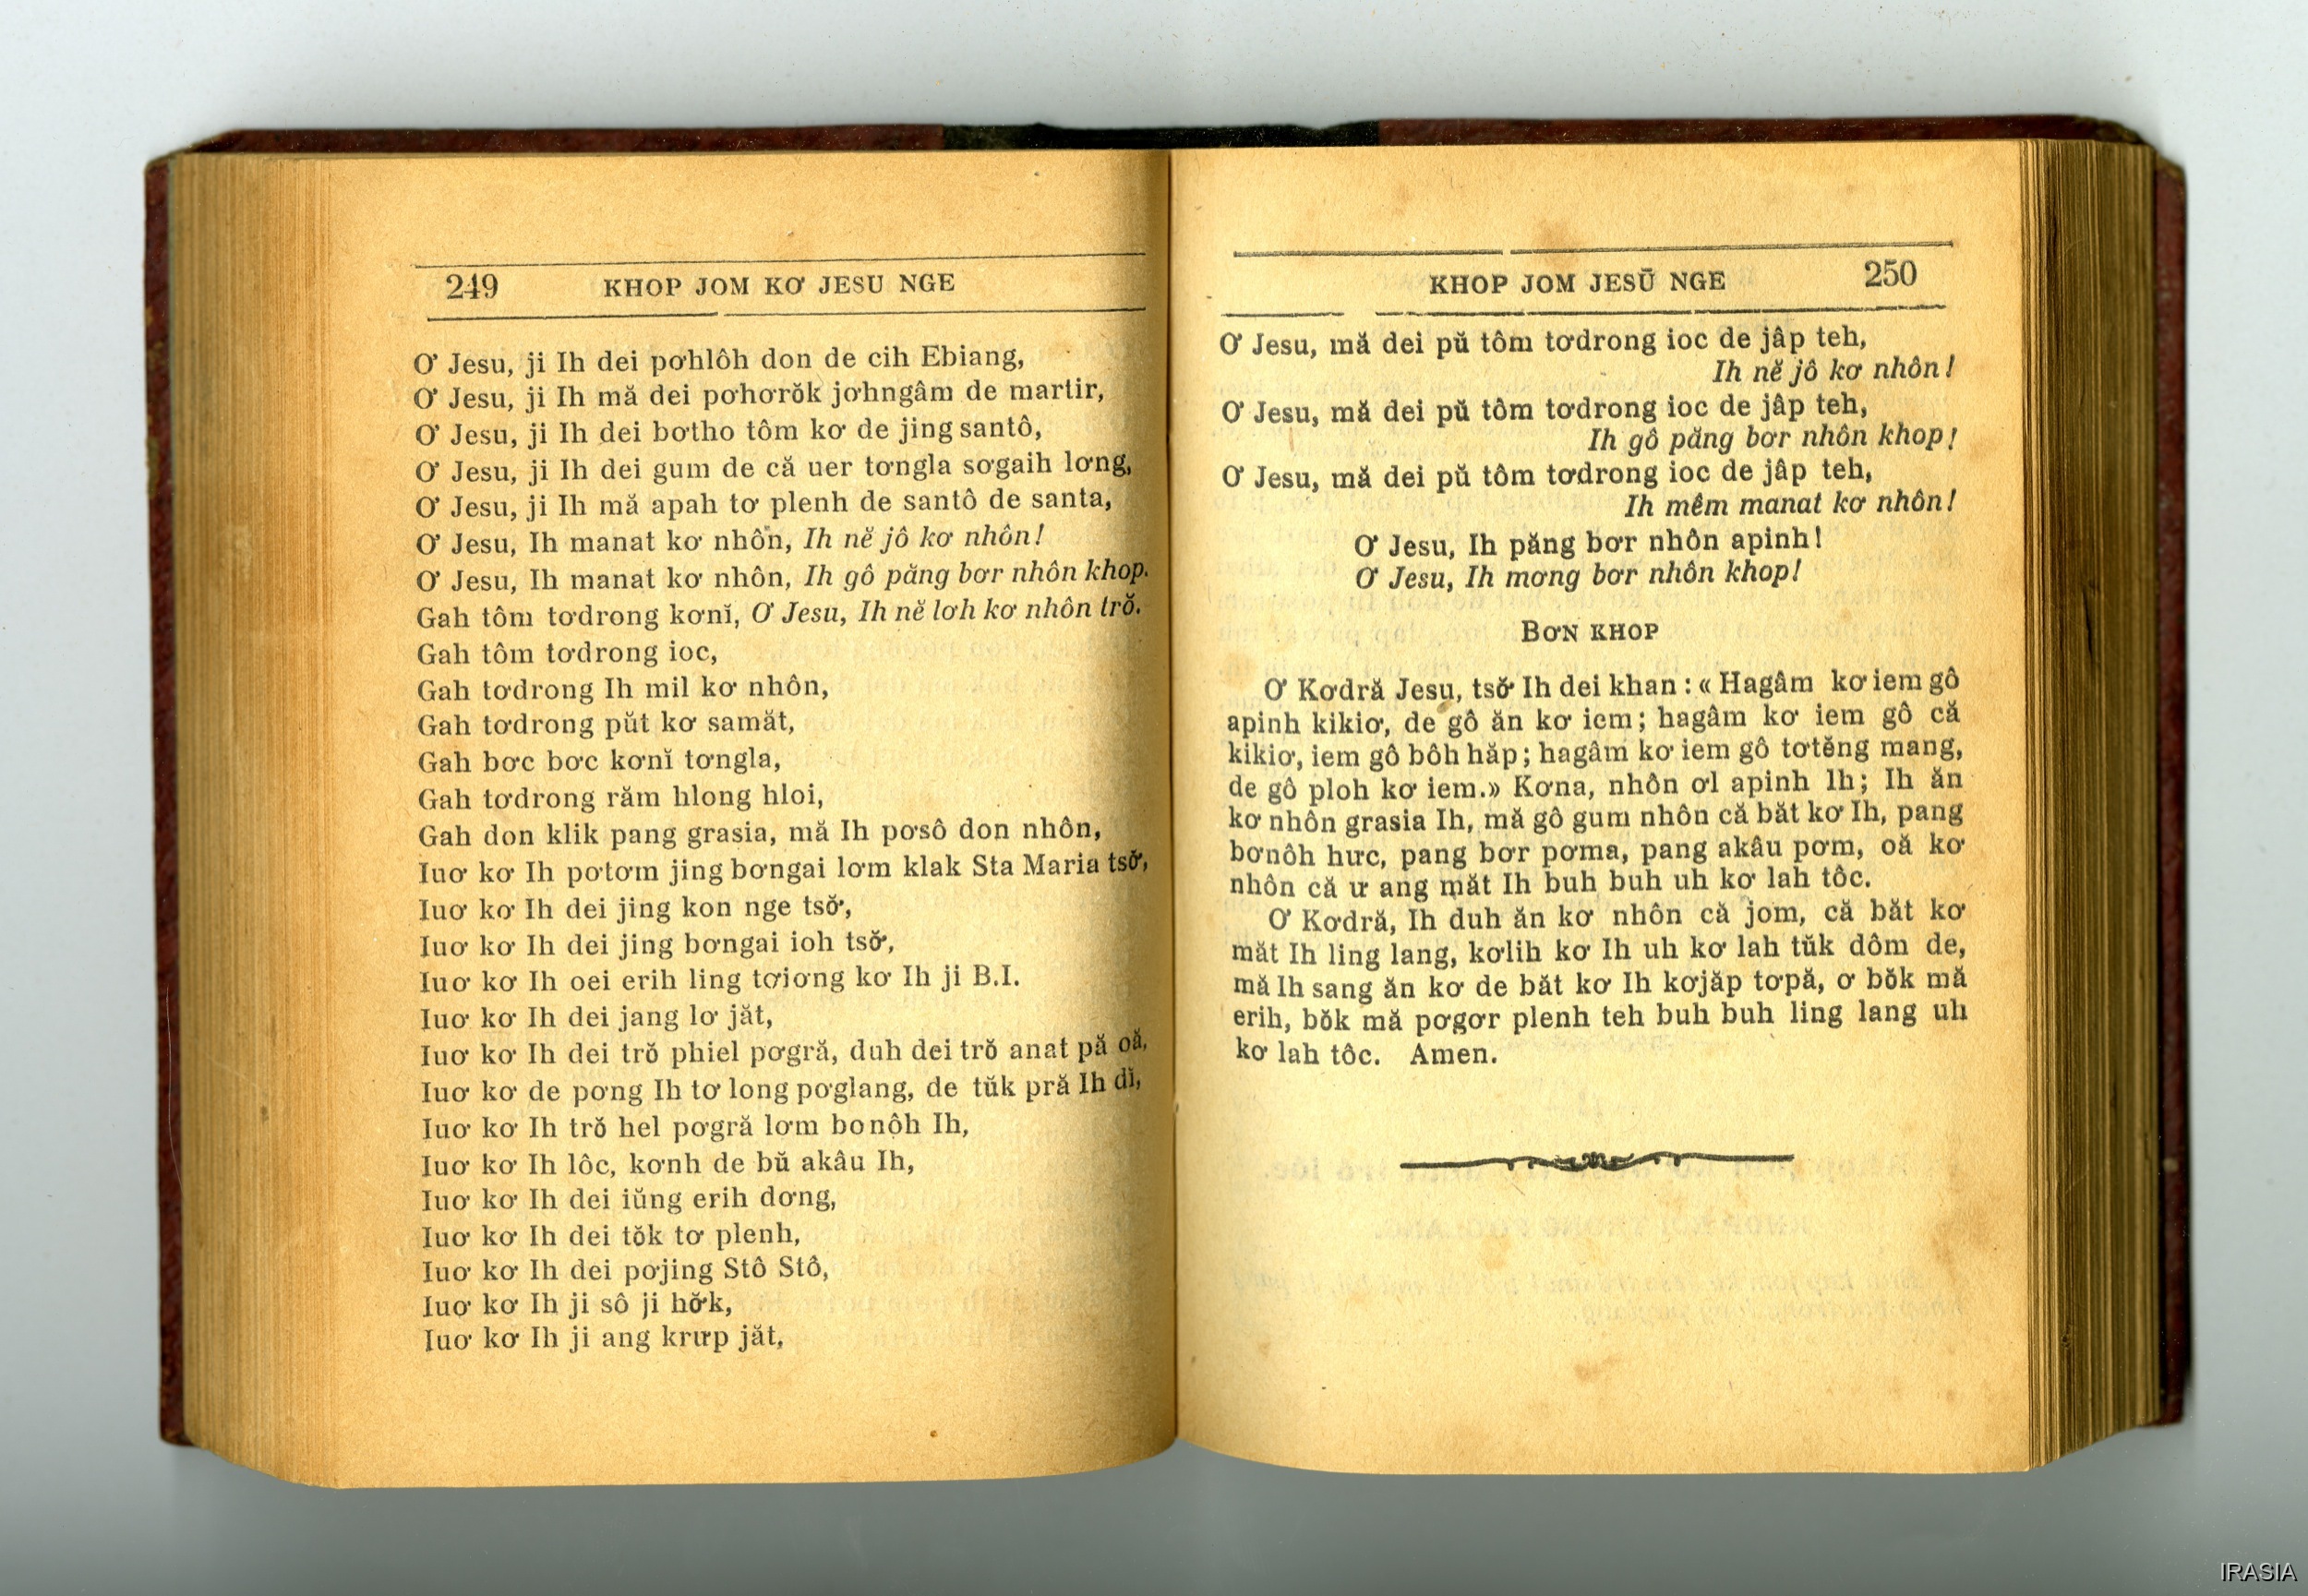 249 KHOP JOM KƠ JESU NGE
Ơ Jesu, ji Ih dei pơhlôh don de cih Ebiang,
Ơ Jesu, ji Ih mă dei pơhơrŏk jơhngâm de martir,
Ơ Jesu, ji Ih dei bơtho tôm kơ de jing santô,
Ơ Jesu, ji Ih dei gum de că uer tơngla sơgaih lơng,
Ơ Jesu, ji Ih mă apah tơ plenh de santô de santa,
Ơ Jesu, Ih manat kơ nhôn, Ih nĕ jô kơ nhôn!
Ơ Jesu, Ih manat kơ nhôn, Ih gô păng bơr nhôn khop.
Gah tôm tơdrong kơnĭ, Ơ Jesu, Ih nĕ lơh kơ nhôn trŏ.
Gah tôm tơdrong ioc,
Gah tơdrong Ih mil kơ nhôn,
Gah tơdrong pŭt kơ samăt,
Gah bơc bơc kơnĭ tơngla,
Gah tơdrong răm hlong hloi,
Gah don klik pang grasia, mă Ih pơsô don nhôn,
Iuơ kơ Ih pơtơm jing bơngai lơm klak Sta Maria tsơ̆,
Iuơ kơ Ih dei jing kon nge tsơ̆,
Iuơ kơ Ih dei jing bơngai ioh tsơ̆,
Iuơ kơ Ih oei erih ling tơiơng kơ Ih ji B.I.
Iuơ kơ Ih dei jang lơ jăt,
Iuơ kơ Ih dei trŏ phiel pơgră, duh dei trŏ anat pă oă,
Iuơ kơ de pơng Ih tơ long pơglang, de tŭk pră Ih dĭ,
Iuơ kơ Ih trŏ hel pơgră lơm bonôh Ih,
Iuơ kơ Ih lôc, kơnh de bŭ akâu Ih,
Iuơ kơ Ih dei iŭng erih dơng,
Iuơ kơ Ih dei tŏk tơ plenh,
Iuơ kơ Ih dei pơjing Stô Stô,
Iuơ kơ Ih ji sô ji hơ̆k,
Iuơ kơ Ih ji ang krưp jăt,
KHOP JOM JESŬ NGE 250
Ơ Jesu, mă dei pŭ tôm tơdrong ioc de jâp teh,
Ih nĕ jô kơ nhôn!
Ơ Jesu, mă dei pŭ tôm tơdrong ioc de jâp teh,
Ih gô păng bơr nhôn khop!
Ơ Jesu, mă dei pŭ tôm tơdrong ioc de jâp teh,
Ih mêm manat kơ nhôn!
Ơ Jesu, Ih păng bơr nhôn apinh!
Ơ Jesu, Ih mơng bơr nhôn khop!
BƠN KHOP
Ơ Kơdră Jesu, tsơ̆ Ih dei khan : « Hagâm kơ iem gô
apinh kikiơ, de gô ăn kơ iem; hagâm kơ iem gô că
kikiơ, iem gô bôh hăp; hagâm kơ iem gô tơtĕng mang,
de gô ploh kơ iem.» Kơna, nhôn ơl apinh Ih; Ih ăn
kơ nhôn grasia Ih, mă gô gum nhôn că băt kơ Ih, pang
bơnôh hưc, pang bơr pơma, pang akâu pơm, oă kơ
nhôn că ư ang măt Ih buh buh uh kơ lah tôc.
Ơ Kơdră, Ih duh ăn kơ nhôn că jom, că băt kơ
măt Ih ling lang, kơlih kơ Ih uh kơ lah tŭk dôm de,
mă Ih sang ăn kơ de băt kơ Ih kơjăp tơpă, ơ bŏk mă
erih, bŏk mă pơgơr plenh teh buh buh ling lang uh
kơ lah tôc. Amen.
IRASIA